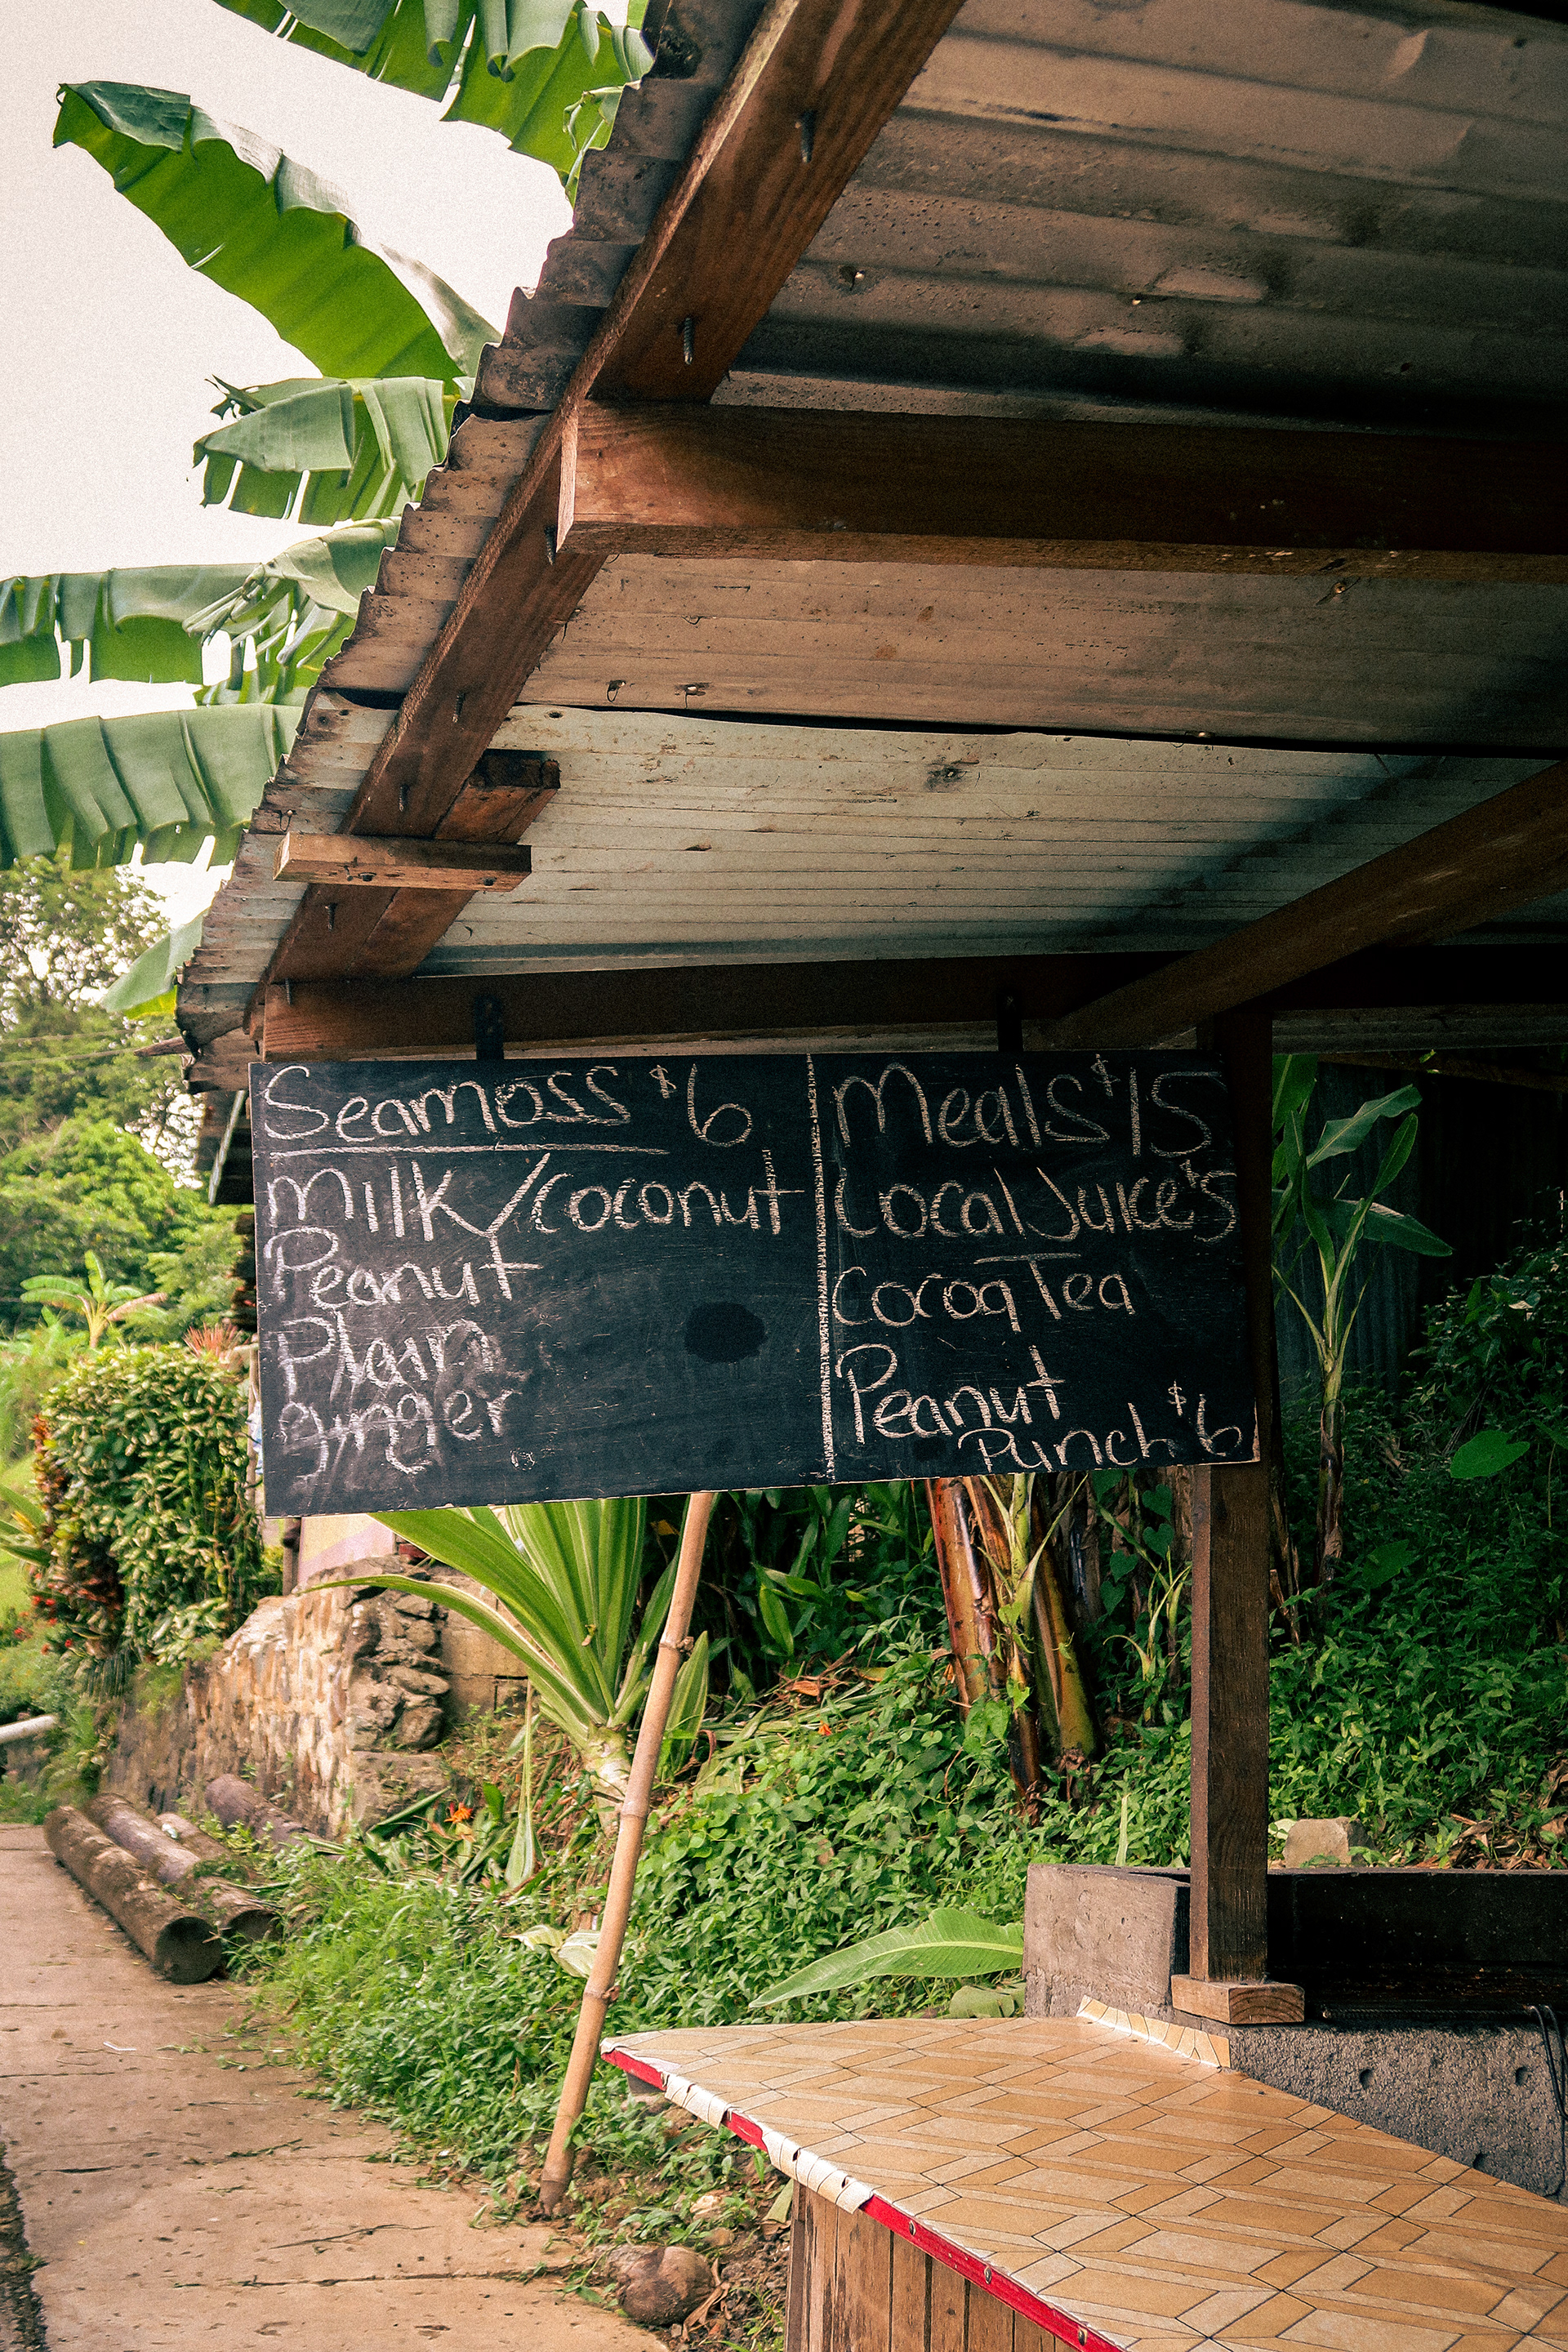 Seamoss $6
Milk/coconut
Peanut
Plain
ginger
Meals $15
Local Juice's
Cocoa Tea
Peanut
Punch $6